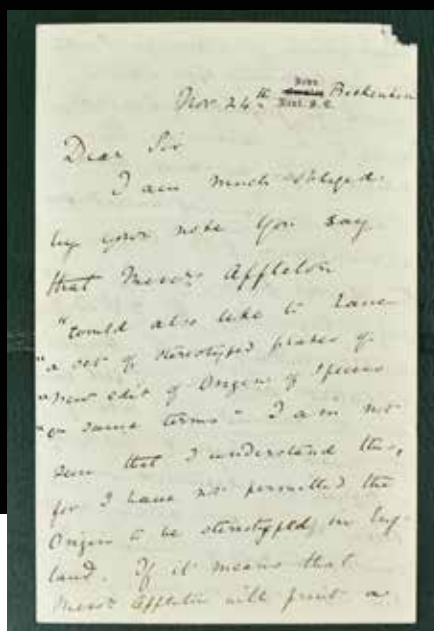 Down.
Nov. 24th Kent. S.E. Beckenham
Dear Sir
I am much obliged
by your note You say
that Messrs Appleton
"would also like to have
"a set of stereotyped plates of
"new edit of Origin of Species
"on same terms" I am not
sure that I understand this,
for I have not permitted the
Origin to be stereotyped in Eng-
land. If it means that
Messrs Appleton will print a